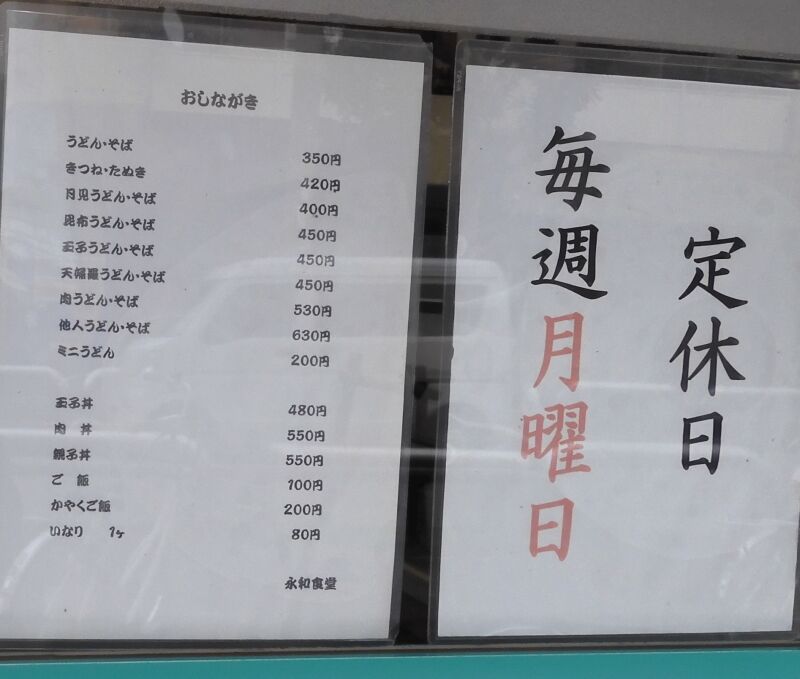 おしながき
うどん・そば 350円
きつね・たぬき 420円
月見うどん・そば 400円
昆布うどん・そば 450円
玉子うどん・そば 450円
天婦羅うどん・そば 450円
肉うどん・そば 530円
他人うどん・そば 630円
ミニうどん 200円
玉子丼 480円
肉 丼 550円
親子丼 550円
ご 飯 100円
かやくご飯 200円
いなり 1ヶ 80円
永和食堂
定休日
毎週月曜日